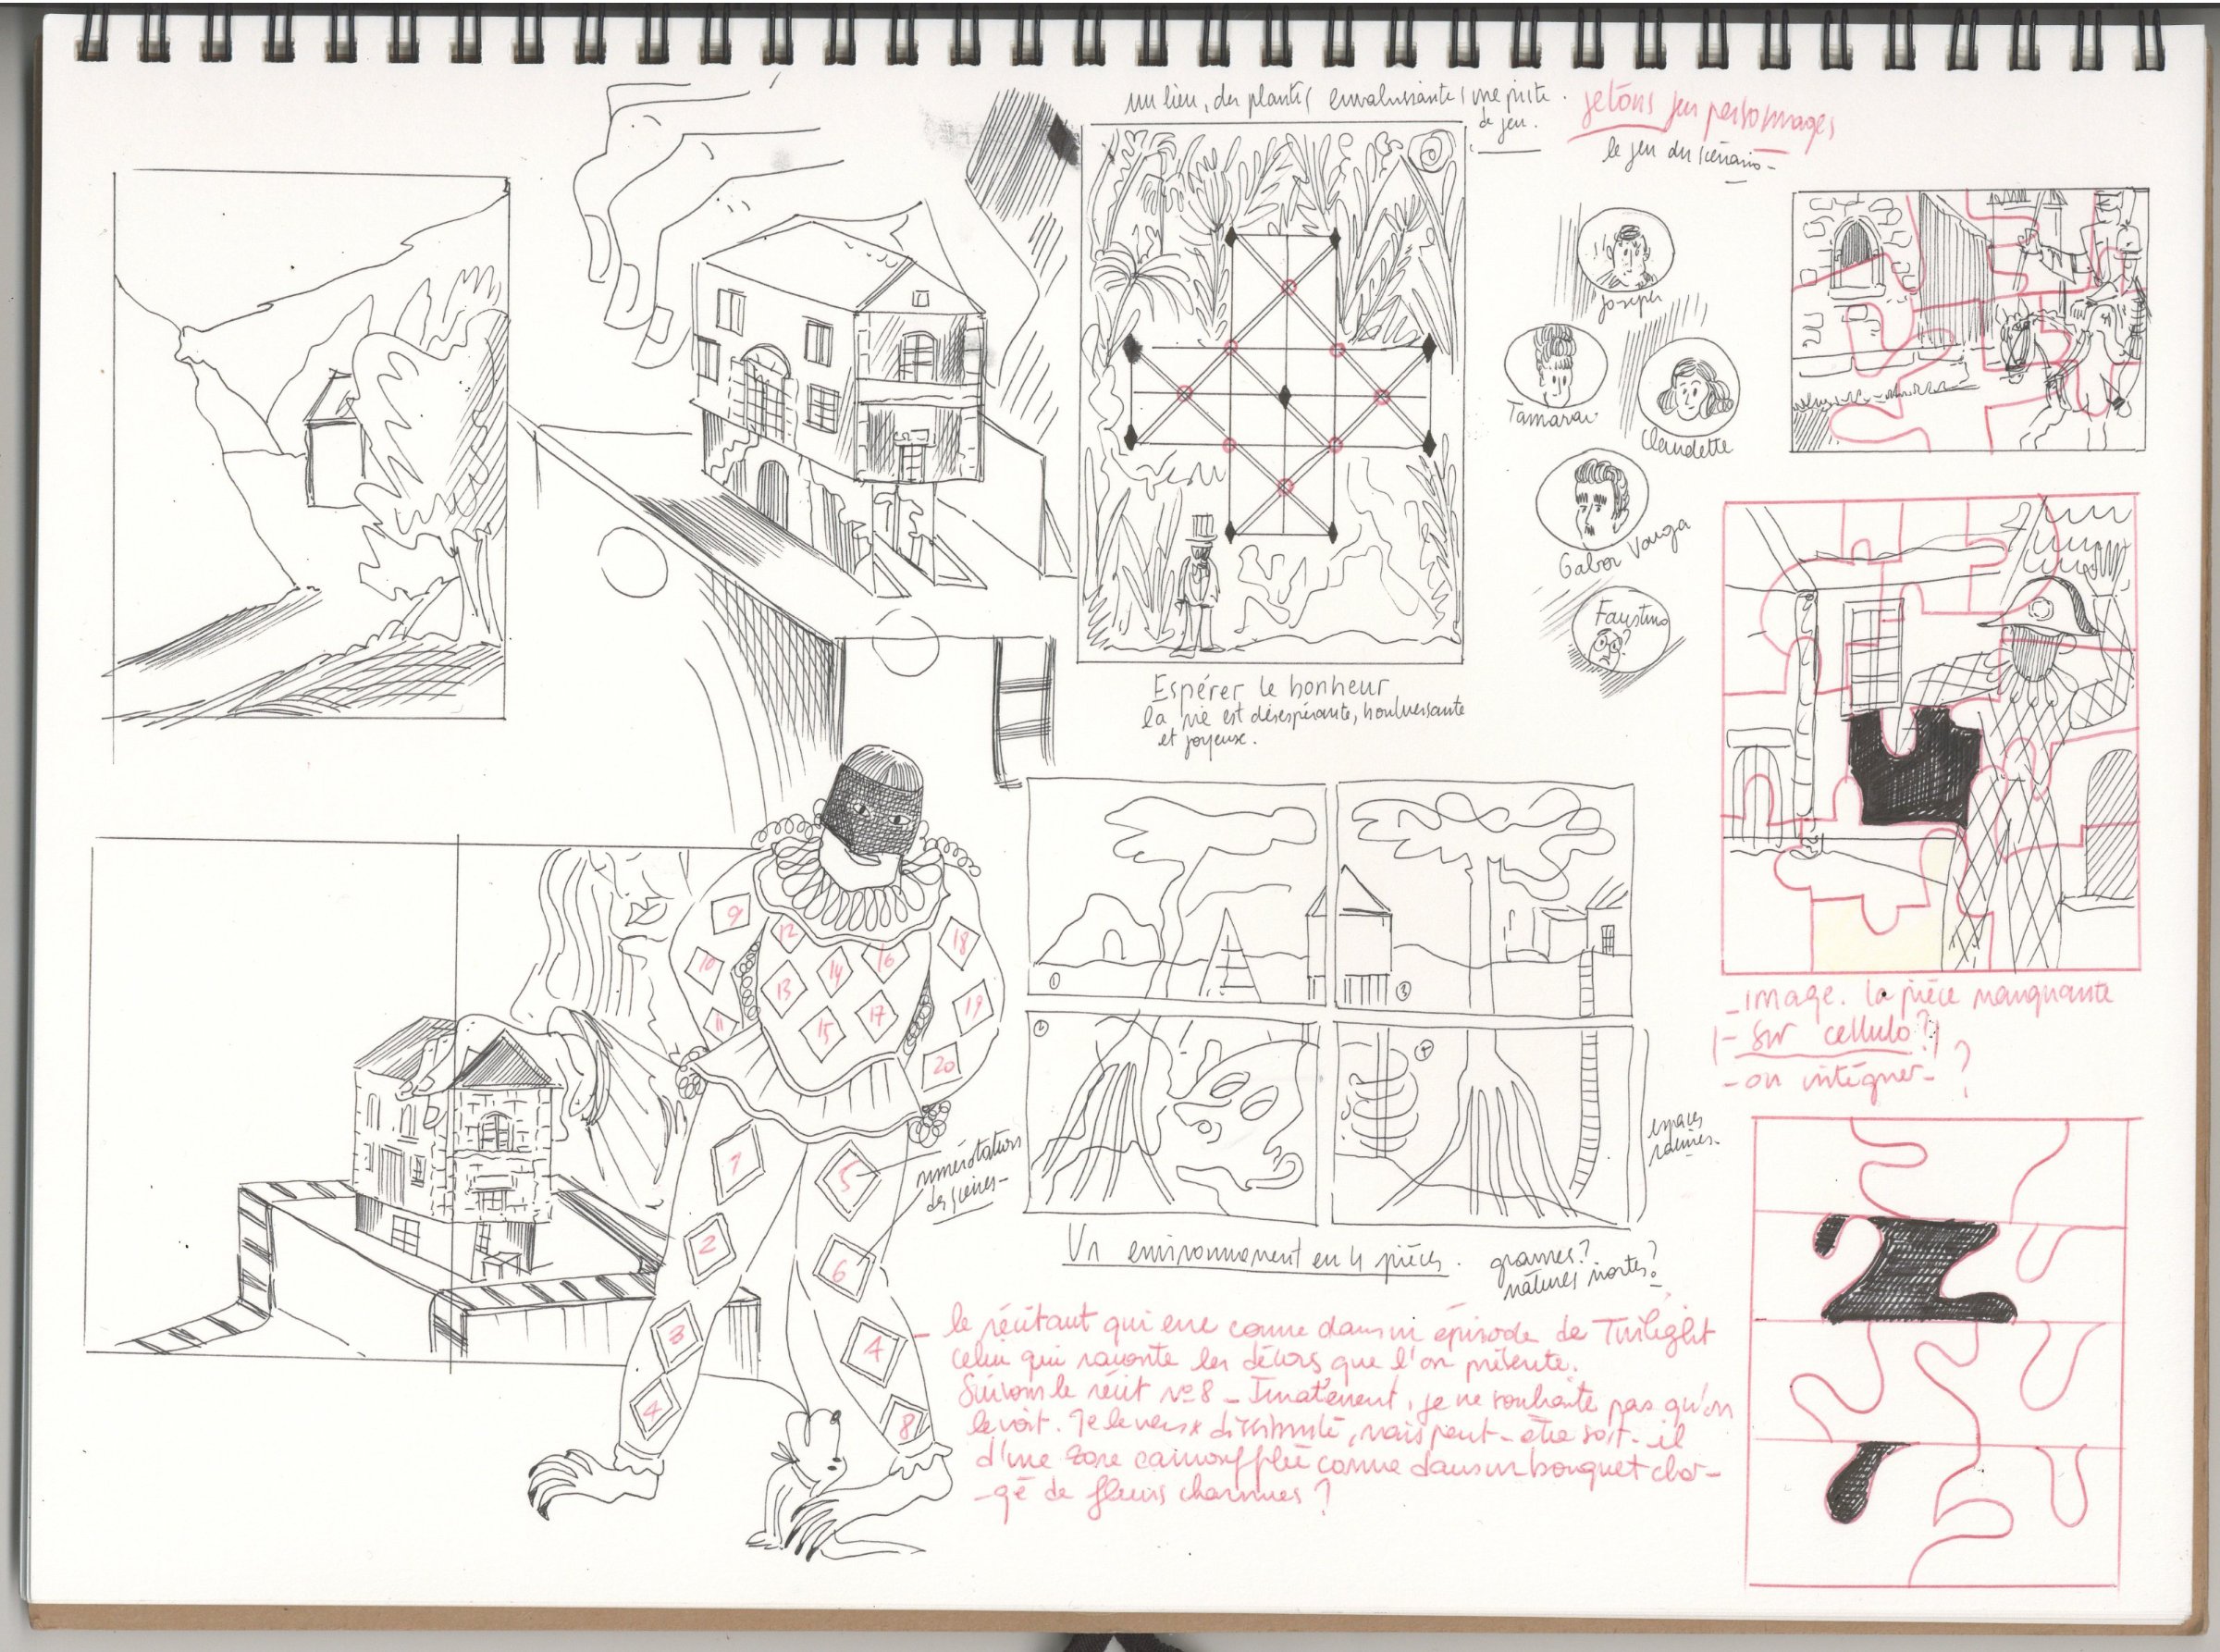 un lieu, des plantes envahissantes, une piste
de jeu.
jetons jeu personnages
le jeu du scénario -
Joseph
Tamara
Claudette
Gabor Varga
Faustino
?
Espérer le bonheur
la vie est désespérante, bouleversante
et joyeuse.
9
10
11
12
13
14
15
16
17
18
19
20
1
2
3
4
5
6
4
8
numérotations
des scènes -
1
3
2
4
espaces
racines.
Un environnement en 4 pièces. grammes?
natures mortes?
- image. la pièce manquante
- Sur cellulo?
- ou intégrer - ?
- le récitant qui erre comme dans un épisode de Twilight
celui qui raconte les décors que l'on présente.
Suivons le récit nº 8 - , je ne souhaite pas qu'on
le voit. Je le veux dissimulé, mais peut-être soit-il
d'une zone camouflée comme dans un bouquet char-
-gé de fleurs charnues ?